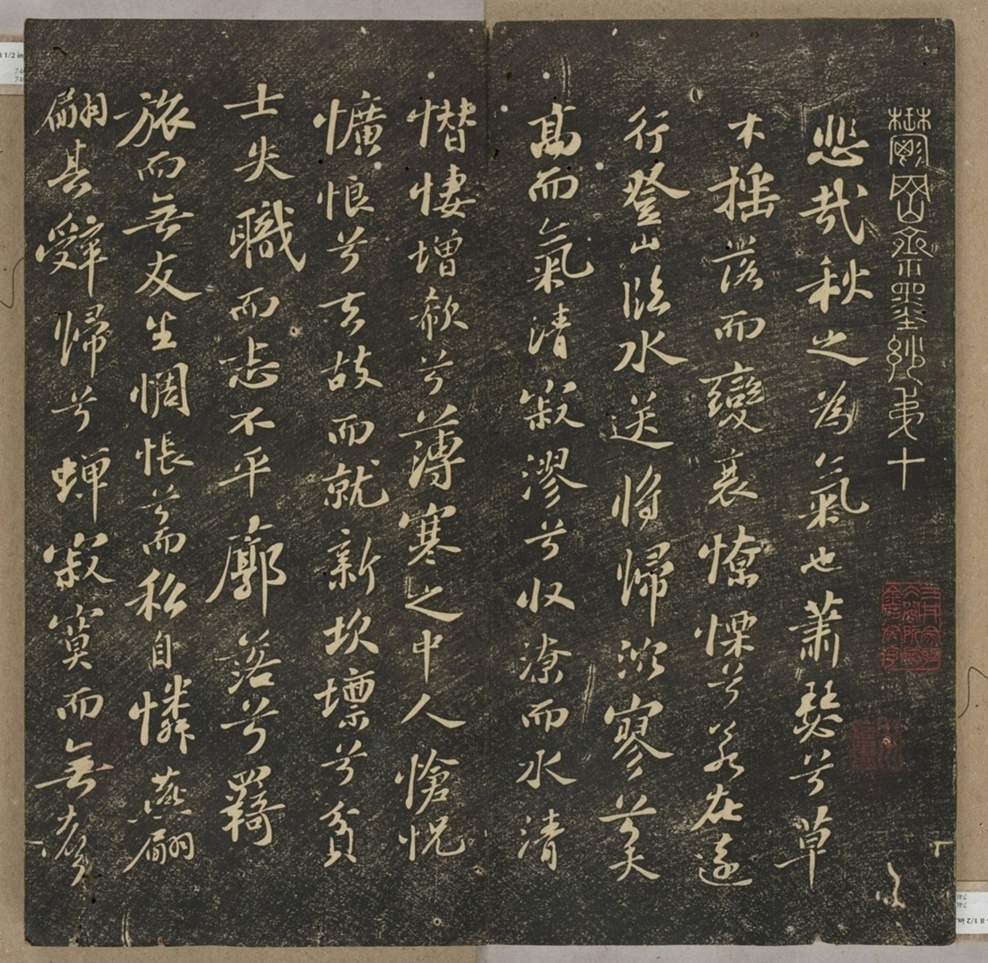 鬱岡齋墨妙第十
悲哉秋之為氣也蕭瑟兮草
木搖落而變衰憭慄兮若在遠
行登山臨水送將歸泬寥
高而氣清寂漻兮収潦而水清
憯悽增欷兮薄寒之中人愴怳
懭悢兮去故而就新坎壈兮貧
士失職而志不平廓落兮羇
旅而無友生惆悵兮而私自憐燕翩
翩其辤歸兮蟬寂寞而無聲